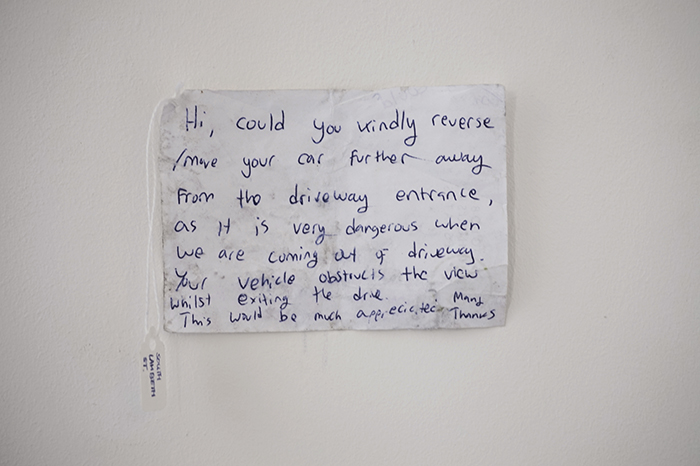 Hi, could you kindly reverse
/move your car further away
from the driveway entrance,
as it is very dangerous when
we are coming out of driveway.
Your vehicle obstructs the view
whilst exiting the drive.
This would be much appreciated. Many
Thanks
SOUTH
LAMBETH
ST.